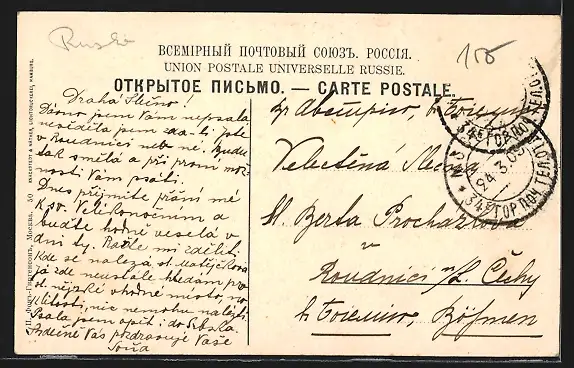 Rusko
155
ВСЕМІРНЫЙ ПОЧТОВЫЙ СОЮЗЪ. РОССІЯ.
UNION POSTALE UNIVERSELLE RUSSIE.
ОТКРЫТОЕ ПИСЬМО. — CARTE POSTALE.
Drahá Slečno!
Dávno jsem Vám nepsala
nevěděla jsem zda-li jste
v Roudnici neb ne. Budu
tak smělá a při první mož
nosti Vám psáti.
Dnes přijměte přání mé
k sv. Velikonocím a
buďte hodně veselá v
dni ty. Račte mi zděliti
kde se nalezá sl. Matějčkova
já zde neustále hledám pro
sl. nějaké vhodné místo, no
k lítosti, nic nemohu nalézti
Psala jsem opět i do Srbska.
Srdečně Vás pozdravuje Vaše
Soňa
Velectěná Slečna
Sl. Berta Procházkova
v
Roudnici n/L. Čechy
Böhmen
24.3.09
34 ГОР. ПОЧ. ТЕЛ.